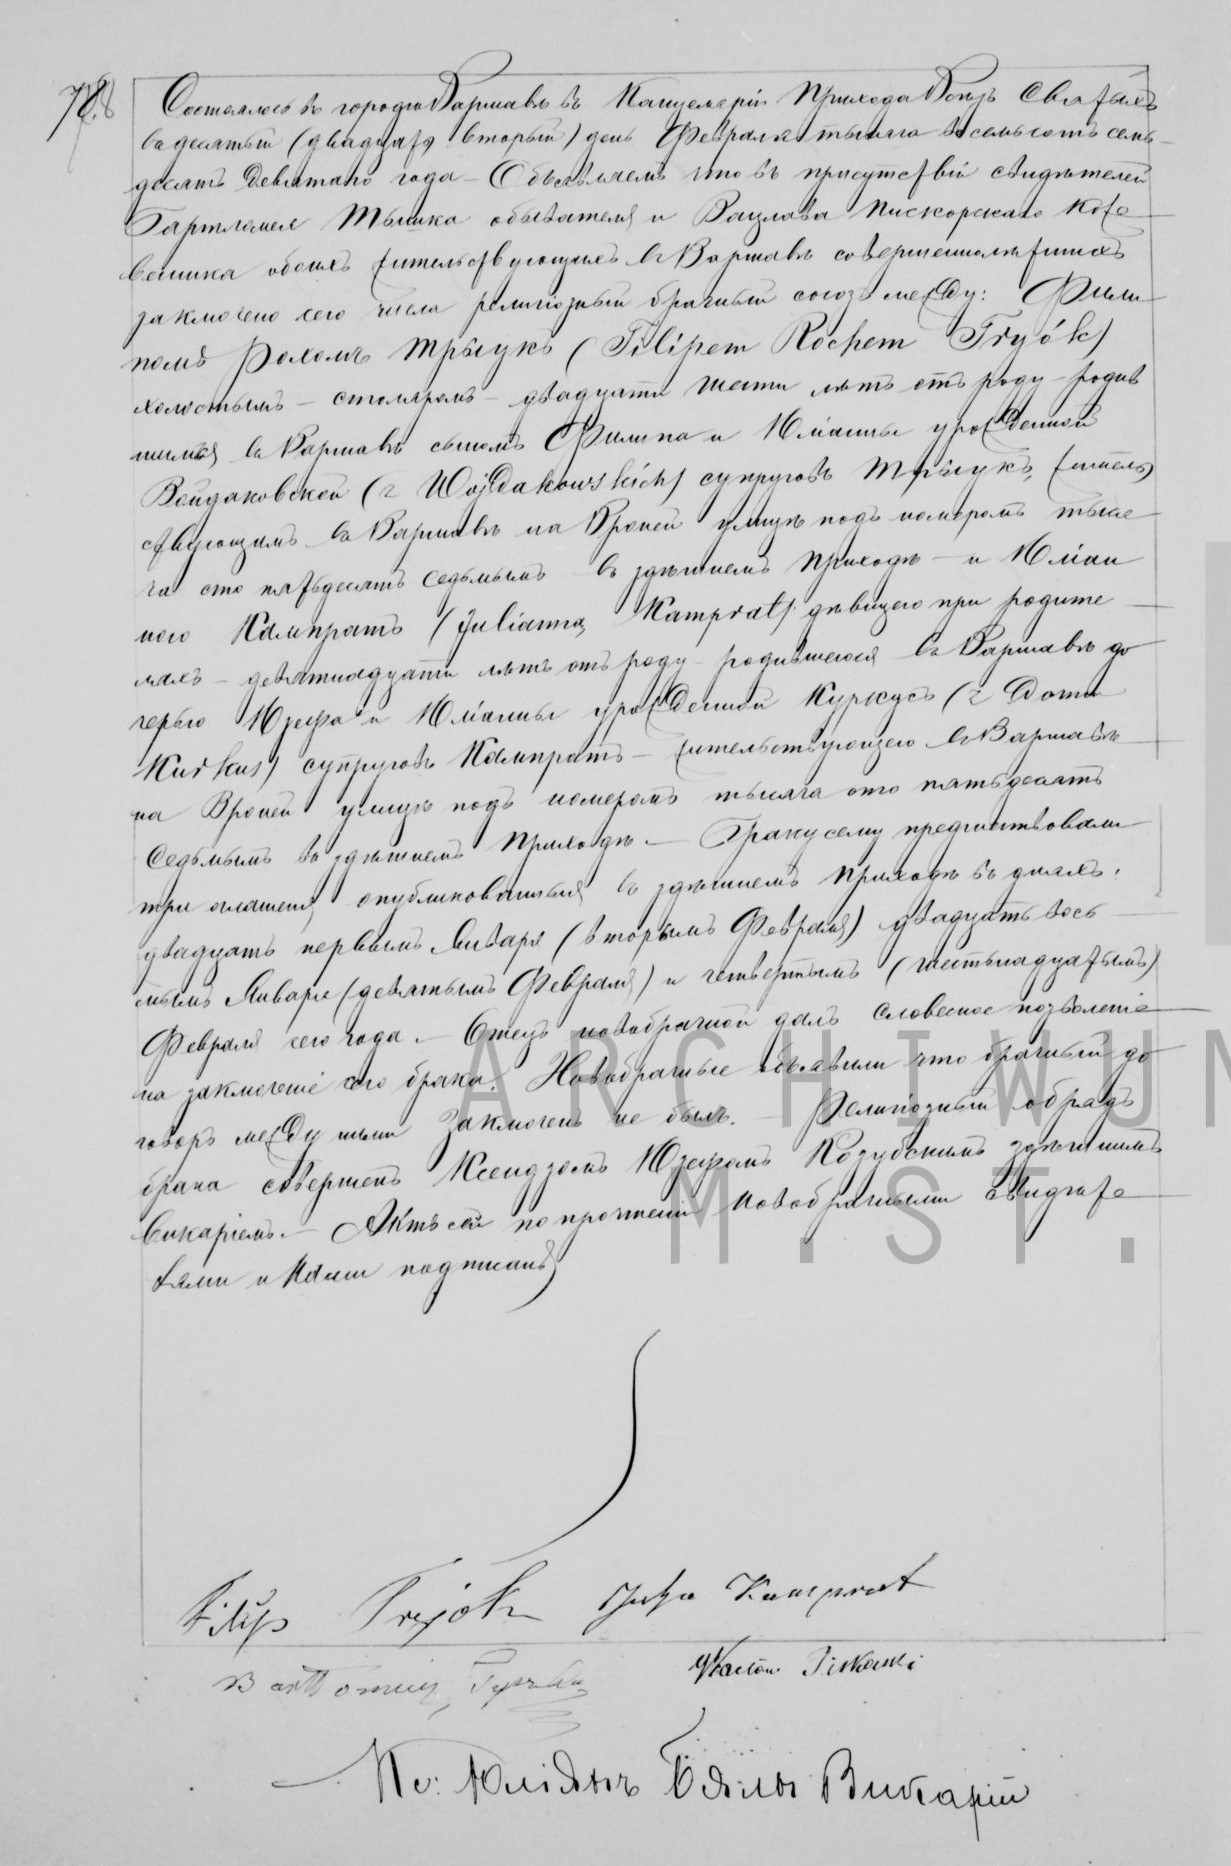 78.
Состоялось въ городѣ Варшавѣ въ Канцеляріи Прихода Всѣхъ Святыхъ
въ десятый (двадцать второй) день Февраля тысяча восемьсотъ семь-
десятъ девятаго года – Объявляемъ что въ присутствіи свидѣтелей
Бартломея обывателя и Вацлава Пискорскаго коже-
веника обоихъ жительствующихъ въ Варшавѣ совершеннолѣтнихъ
заключено сего числа религіозный брачный союзъ между: Фили
помъ Рохомъ Трыукъ (Filipem Rochem Tryók)
холостымъ – столяромъ – двадцати шести лѣтъ отъ роду – родив
шимся въ Варшавѣ сыномъ Филипа и Юліанны урожденной
Войдаковской (z Wojdakowskich) супруговъ Трыукъ, житель
ствующимъ въ Варшавѣ на Вроней улицѣ подъ номеромъ тыся-
ча сто пятьдесятъ седьмымъ въ здѣшнемъ Приходѣ – и Юліан
ною Кампратъ (Julianną Kamprat) дѣвицею при родите
ляхъ – девятнадцати лѣтъ отъ роду – родившеюся въ Варшавѣ до
черью Юзефа и Юліанны урожденной Куркусъ (z domu
Kurkus) супруговъ Кампратъ – жительствующею въ Варшавѣ
на Вроней улицѣ подъ номеромъ тысяча сто пятьдесятъ
седьмымъ въ здѣшнемъ Приходѣ. – Браку сему предшествовали
три оглашенія опубликованныя въ здѣшнемъ Приходѣ въ дняхъ:
двадцать первымъ Января (вторымъ Февраля) двадцать вось
мымъ Января (девятымъ Февраля) и четвертымъ (шестьнадцатымъ)
Февраля сего года. – Отецъ новобрачной далъ словесное позволеніе
на заключеніе сего брака. Новобрачные объявили что брачный до
говоръ между ними заключенъ не былъ. – Религіозный обрядъ
брака совершенъ Ксендзомъ Юзефомъ Козубскимъ здѣшнимъ
Викаріемъ. – Актъ сей по прочтеніи новобрачными свидѣте
лями и Нами подписанъ
Filip Tryók Kamprat
Bartłomiej
Викарій
ARCHIWUM
M.ST.